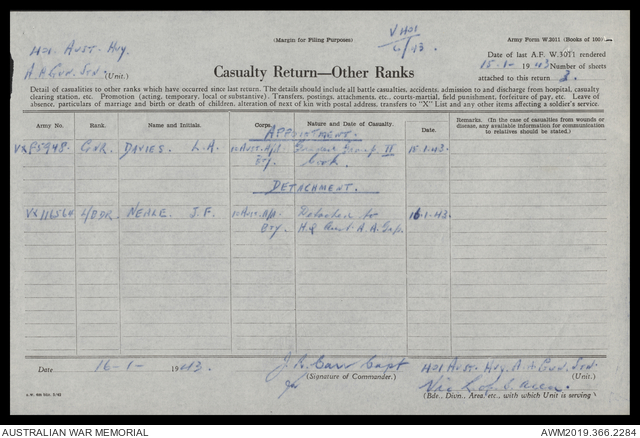 (Margin for Filing Purposes)
V401
6/43
Army Form W.3011 (Books of 100)
401 AUST. HVY.
A.A GUN. STN. (Unit.)
Date of last A.F. W.3011 rendered
15-1- 1943 Number of sheets
attached to this return 3.
Casualty Return—Other Ranks
Detail of casualties to other ranks which have occurred since last return. The details should include all battle casualties, accidents, admission to and discharge from hospital, casualty
clearing station, etc. Promotion (acting, temporary, local or substantive). Transfers, postings, attachments, etc., courts-martial, field punishment, forfeiture of pay, etc. Leave of
absence, particulars of marriage and birth or death of children, alteration of next of kin with postal address, transfers to "X" List and any other items affecting a soldier's service.
Army No. Rank. Name and Initials. Corps. Nature and Date of Casualty. Date. Remarks. (In the case of casualties from wounds or
disease, any available information for communication
to relatives should be stated.)
APPOINTMENT.
GNR. DAVIES. L.A. Group II 15.1.43.
Bty. Cook.
DETACHMENT.
L/BDR. NEALE. J.F. Detached to 16-1-43.
Bty. H.Q Aust A.A. Grp.
Date 16-1- 1943. Capt 401 AUST. HVY. A.A GUN. STN.
(Signature of Commander.) (Unit.)
Vic L of C Area.
(Bde., Divn., Area, etc., with which Unit is serving)
AUSTRALIAN WAR MEMORIAL AWM2019.366.2284